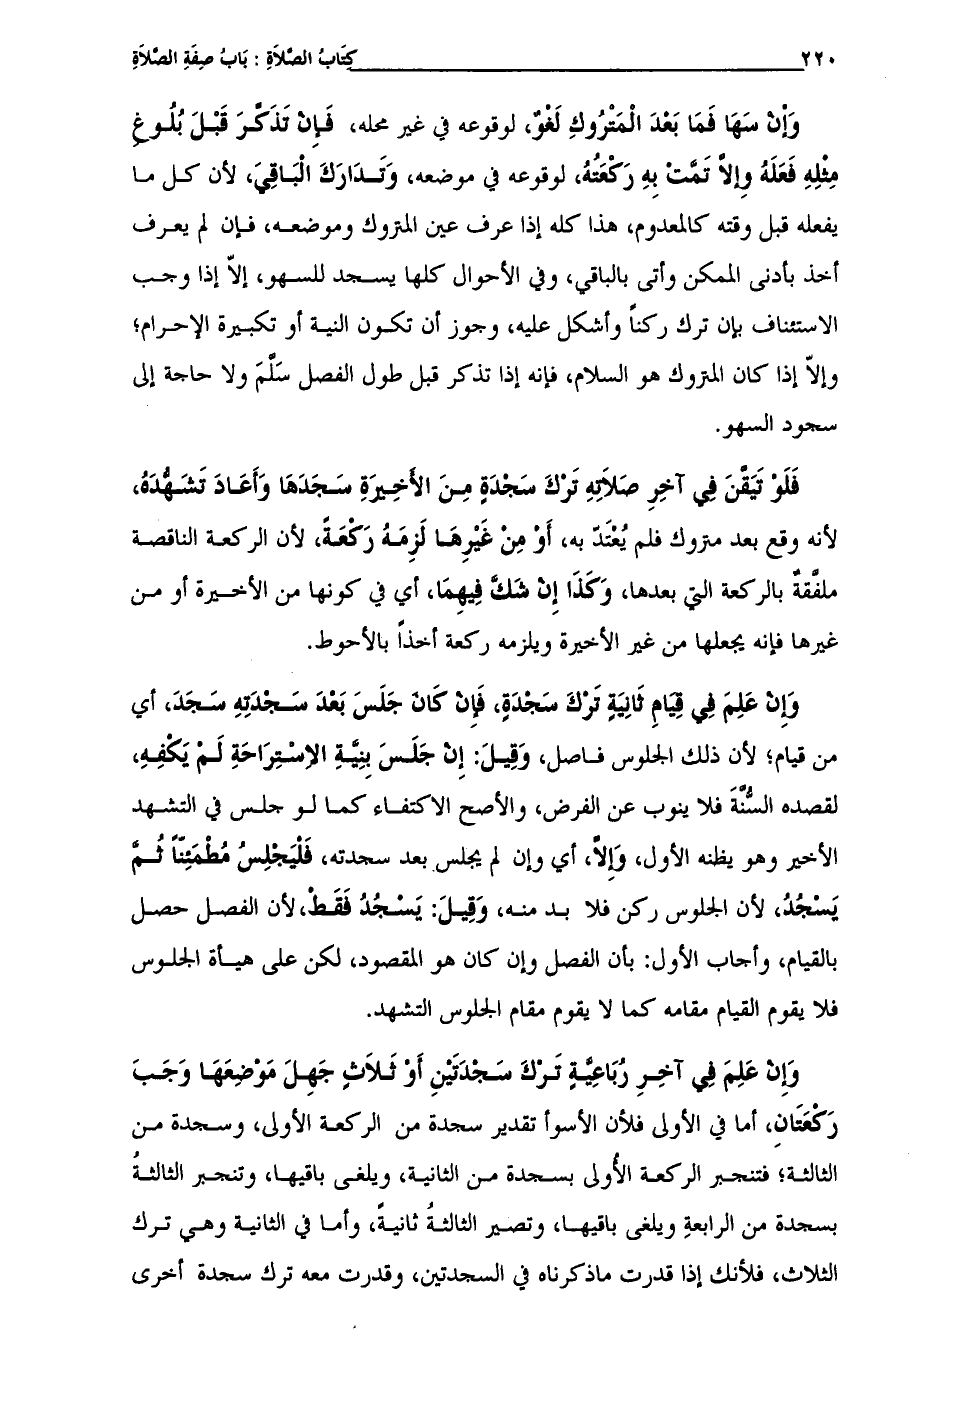 ٢٢٠ كِتَابُ الصَّلَاةِ : بَابُ صِفَةِ الصَّلَاةِ
وَإِنْ سَهَا فَمَا بَعْدَ الْمَتْرُوكِ لَغْوٌ، لوقوعه في غير محله، فَإِنْ تَذَكَّرَ قَبْلَ بُلُوغِ
مِثْلِهِ فَعَلَهُ وإِلاَّ تَمَّتْ بِهِ رَكْعَتُهُ، لوقوعه في موضعه، وَتَدَارَكَ الْبَاقِيَ، لأن كل ما
يفعله قبل وقته كالمعدوم، هذا كله إذا عرف عين المتروك وموضعه، فإن لم يعرف
أخذ بأدنى الممكن وأتى بالباقي، وفي الأحوال كلها يسجد للسهو، إلاّ إذا وجب
الاستئناف بإن ترك ركناً وأشكل عليه، وجوز أن تكون النية أو تكبيرة الإحرام؛
وإلاّ إذا كان المتروك هو السلام، فإنه إذا تذكر قبل طول الفصل سَلَّمَ ولا حاجة إلى
سجود السهو.
فَلَوْ تَيَقَّنَ فِي آخِرِ صَلَاتِهِ تَرْكَ سَجْدَةٍ مِنَ الأَخِيرَةِ سَجَدَهَا وَأَعَادَ تَشَهُّدَهُ،
لأنه وقع بعد متروك فلم يُعْتَدّ به، أَوْ مِنْ غَيْرِهَا لَزِمَهُ رَكْعَةً، لأن الركعة الناقصة
ملفَّقةٌ بالركعة التي بعدها، وَكَذَا إِنْ شَكَّ فِيهِمَا، أي في كونها من الأخيرة أو من
غيرها فإنه يجعلها من غير الأخيرة ويلزمه ركعة أخذاً بالأحوط.
وَإِنْ عَلِمَ فِي قِيَامِ ثَانِيَةٍ تَرْكَ سَجْدَةٍ، فَإِنْ كَانَ جَلَسَ بَعْدَ سَجْدَتِهِ سَجَدَ، أي
من قيام؛ لأن ذلك الجلوس فاصل، وَقِيلَ: إِنْ جَلَسَ بِنِيَّةِ الاِسْتِرَاحَةِ لَمْ يَكْفِهِ،
لقصده السُّنَّةَ فلا ينوب عن الفرض، والأصح الاكتفاء كما لو جلس في التشهد
الأخير وهو يظنه الأول، وَإِلاَّ، أي وإن لم يجلس بعد سجدته، فَلْيَجْلِسُ مُطْمَئِنّاً ثُمَّ
يَسْجُدُ، لأن الجلوس ركن فلا بد منه، وَقِيلَ: يَسْجُدُ فَقَطْ، لأن الفصل حصل
بالقيام، وأجاب الأول: بأن الفصل وإن كان هو المقصود، لكن على هيأة الجلوس
فلا يقوم القيام مقامه كما لا يقوم مقام الجلوس التشهد.
وَإِنْ عَلِمَ فِي آخِرِ رُبَاعِيَّةٍ تَرْكَ سَجْدَتَيْنِ أَوْ ثَلاَثٍ جَهِلَ مَوْضِعَهَا وَجَبَ
رَكْعَتَانِ، أما في الأولى فلأن الأسوأ تقدير سجدة من الركعة الأولى، وسجدة من
الثالثة؛ فتنجبر الركعة الأُولى بسجدة من الثانية، ويلغى باقيها، وتنجبر الثالثةُ
بسجدة من الرابعةِ ويلغى باقيها، وتصير الثالثةُ ثانيةً، وأما في الثانية وهي ترك
الثلاث، فلأنك إذا قدرت ماذكرناه في السجدتين، وقدرت معه ترك سجدة أخرى